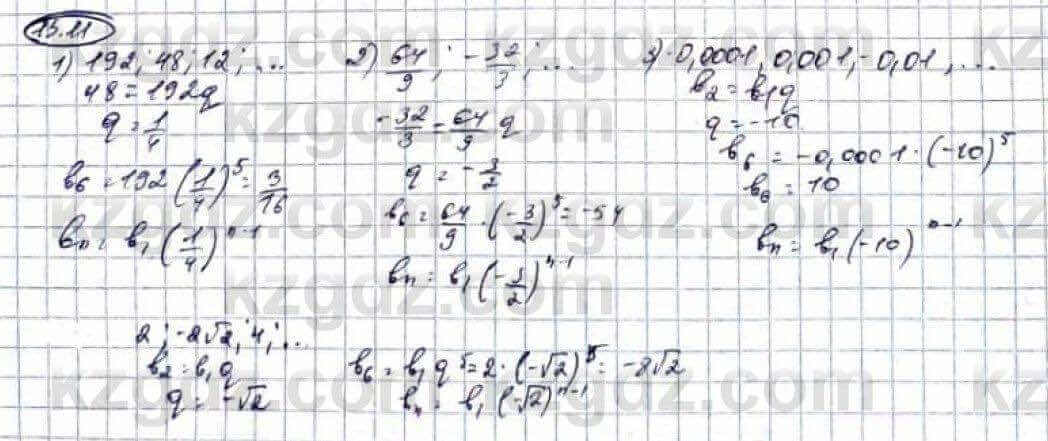 13.11
1) 192; 48; 12; ...
48 = 192q
q = 1/4
b₆ = 192 (1/4)⁵ = 3/16
bₙ = b₁ (1/4)ⁿ⁻¹
2) 64/9; -32/3; ...
-32/3 = 64/9 q
q = -3/2
b₆ = 64/9 · (-3/2)⁵ = -54
bₙ = b₁ (-3/2)ⁿ⁻¹
3) -0,0001, 0,001, -0,01, ...
b₂ = b₁q
q = -10
b₆ = -0,0001 · (-10)⁵
b₆ = 10
bₙ = b₁ (-10)ⁿ⁻¹
2; -2√2; 4; ...
b₂ = b₁q
q = -√2
b₆ = b₁q⁵ = 2 · (-√2)⁵ = -8√2
bₙ = b₁ (-√2)ⁿ⁻¹
kzgdz.com